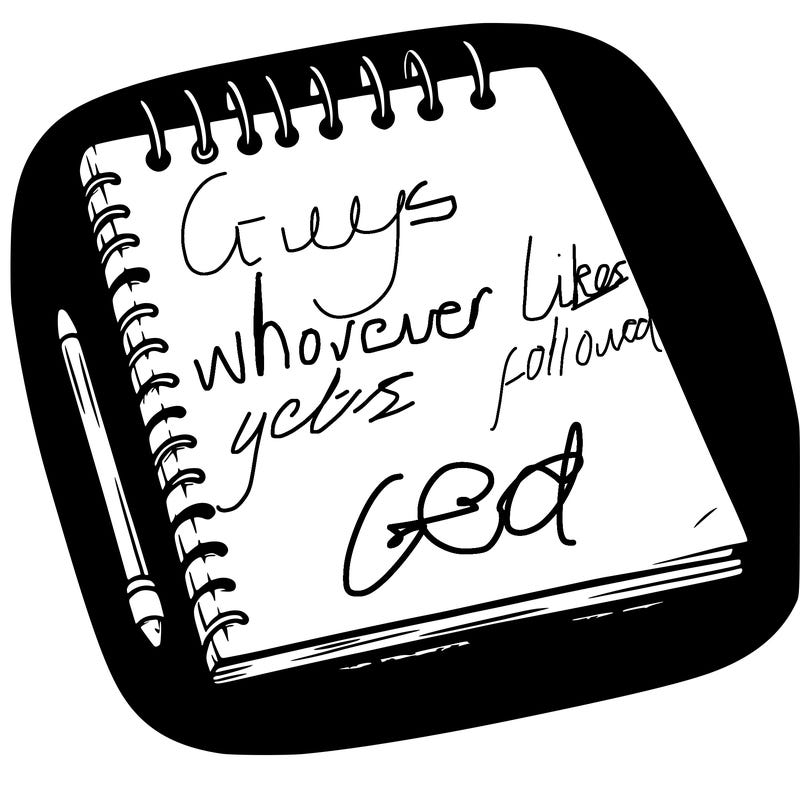 Guys
whorever Likes
gets followed
Ged